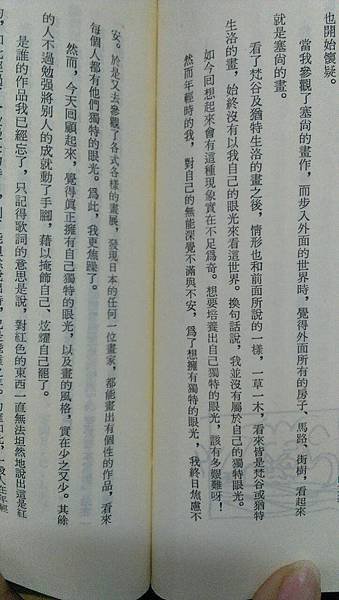 也開始懷疑。
當我參觀了塞尙的畫作，而步入外面的世界時，覺得外面所有的房子、馬路、街樹，看起來
就是塞尙的畫。
看了梵谷及猶特生洛的畫之後，情形也和前面所說的一樣，一草一木，看來皆是梵谷或猶特
生洛的畫，始終沒有以我自己的眼光來看這世界。換句話說，我並沒有屬於自己的獨特眼光。
如今回想起來會有這種現象實在不足爲奇。想要培養出自己獨特的眼光，該有多艱難呀！
然而年輕時的我，對自己的無能深覺不滿與不安，爲了想擁有獨特的眼光，我終日焦慮不
安。於是又去參觀了各式各樣的畫展，發現日本的任何一位畫家，都能畫出有個性的作品，看來
每個人都有他們獨特的眼光。爲此，我更焦躁了。
然而，今天回顧起來，覺得眞正擁有自己獨特的眼光，以及畫的風格，實在少之又少。其餘
的人不過勉強將別人的成就動了手腳，藉以掩飾自己、炫耀自己罷了。
是誰的作品我已經忘了，只記得歌詞的意思是說，對紅色的東西一直無法坦然地說出這是紅
的，如此